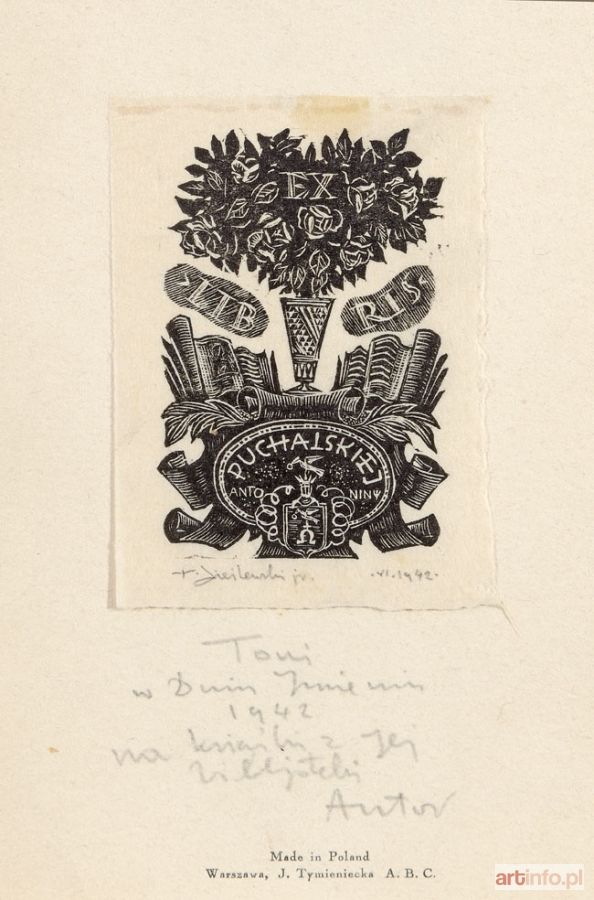 EX
LIB
RIS
PUCHALSKIEJ
ANTO NINY
VI.1942.
Toni
w Dniu Imienin
1942
na książki z Jej
Autor
Made in Poland
Warszawa, J. Tymieniecka A. B. C.
artinfo.pl